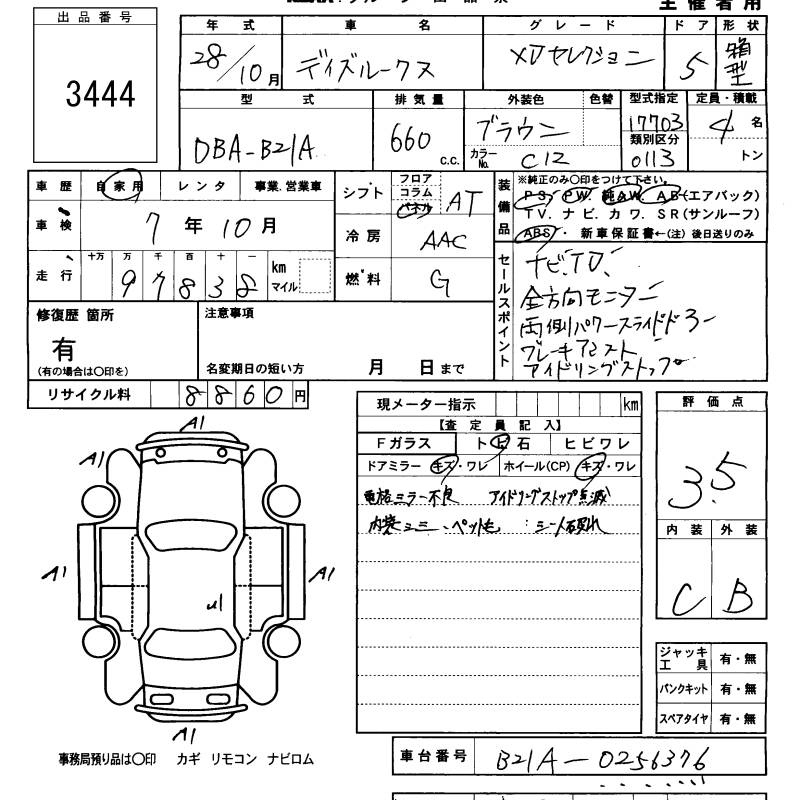 主催者用
出品番号
3444
年式 車名 グレード ドア 形状
28/10月 ディズルークス XDセレクション 5 箱型
型式 排気量 外装色 色替 型式指定 定員・積載
DBA-B21A 660 c.c. ブラウン 17703 4 名
カラーNo. C12 類別区分 0113 トン
車歴 自家用 レンタ 事業.営業車
車検 7年10月
走行 十万 万 千 百 十 一
97838 km マイル
シフト フロア コラム パネル AT
冷房 AAC
燃料 G
装備品 ※純正のみ○印をつけて下さい。
PS. PW. 純AW. AB(エアバック)
TV. ナビ. カワ. SR(サンルーフ)
ABS. 新車保証書←(注)後日送りのみ
セールスポイント
ナビ、TV、
全方向モニター
両側パワースライドドアー
ブレーキアシスト
アイドリングストップ
修復歴 箇所
有
(有の場合は○印を)
注意事項
名変期日の短い方 月 日まで
リサイクル料 8860円
現メーター指示 km
【査定員記入】
Fガラス トビ石 ヒビワレ
ドアミラー キズ・ワレ ホイール(CP) キズ・ワレ
電格ミラー不良 アイドリングストップ点滅
内装シミ、ペット毛 シート破れ
評価点
3.5
内装 外装
C B
A1
A1
A1 A1
U1
A1
ジャッキ工具 有・無
パンクキット 有・無
スペアタイヤ 有・無
事務局預り品は○印 カギ リモコン ナビロム
車台番号 B21A-0256376